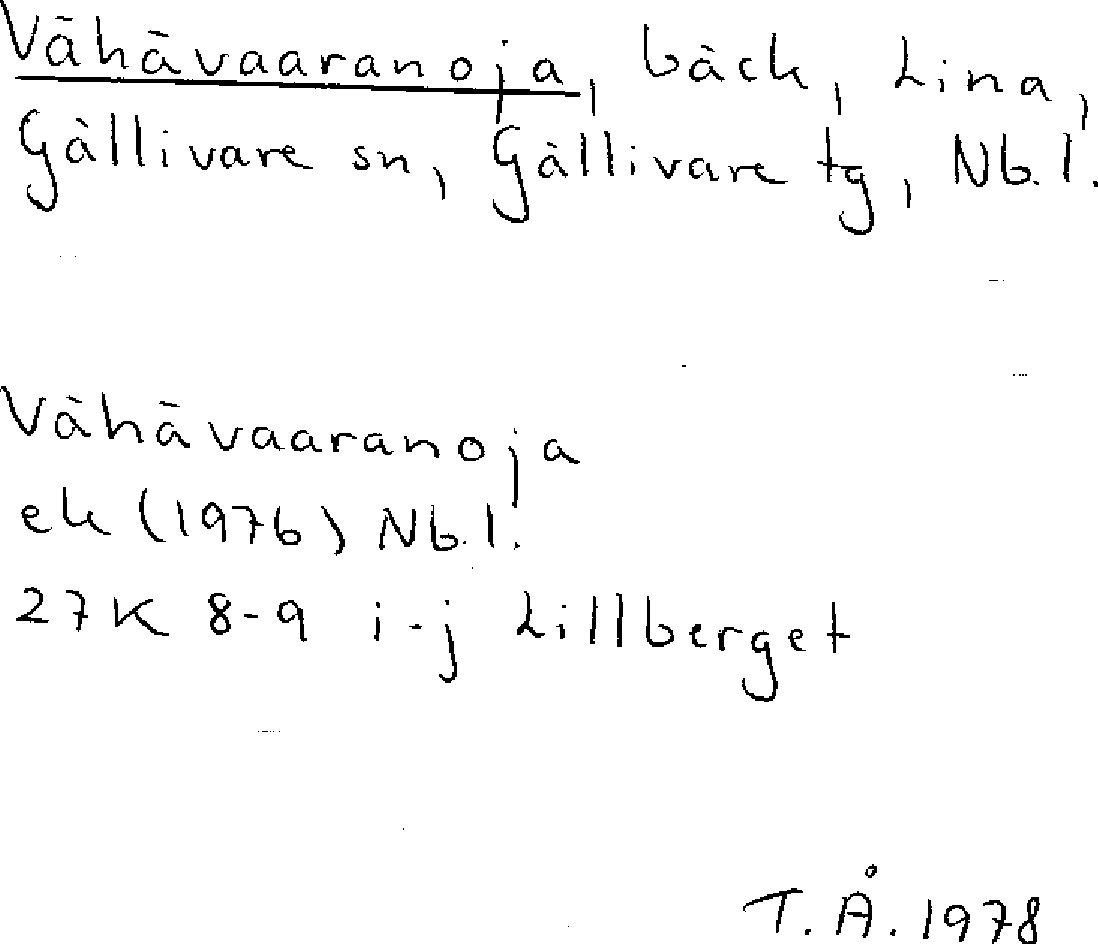 Vähävaaranoja, bäck, Lina,
Gällivare sn, Gällivare tg, Nb.l.
Vähävaaranoja
ek (1976) Nb.l.
27K 8-9 i-j Lillberget
T. Å. 1978